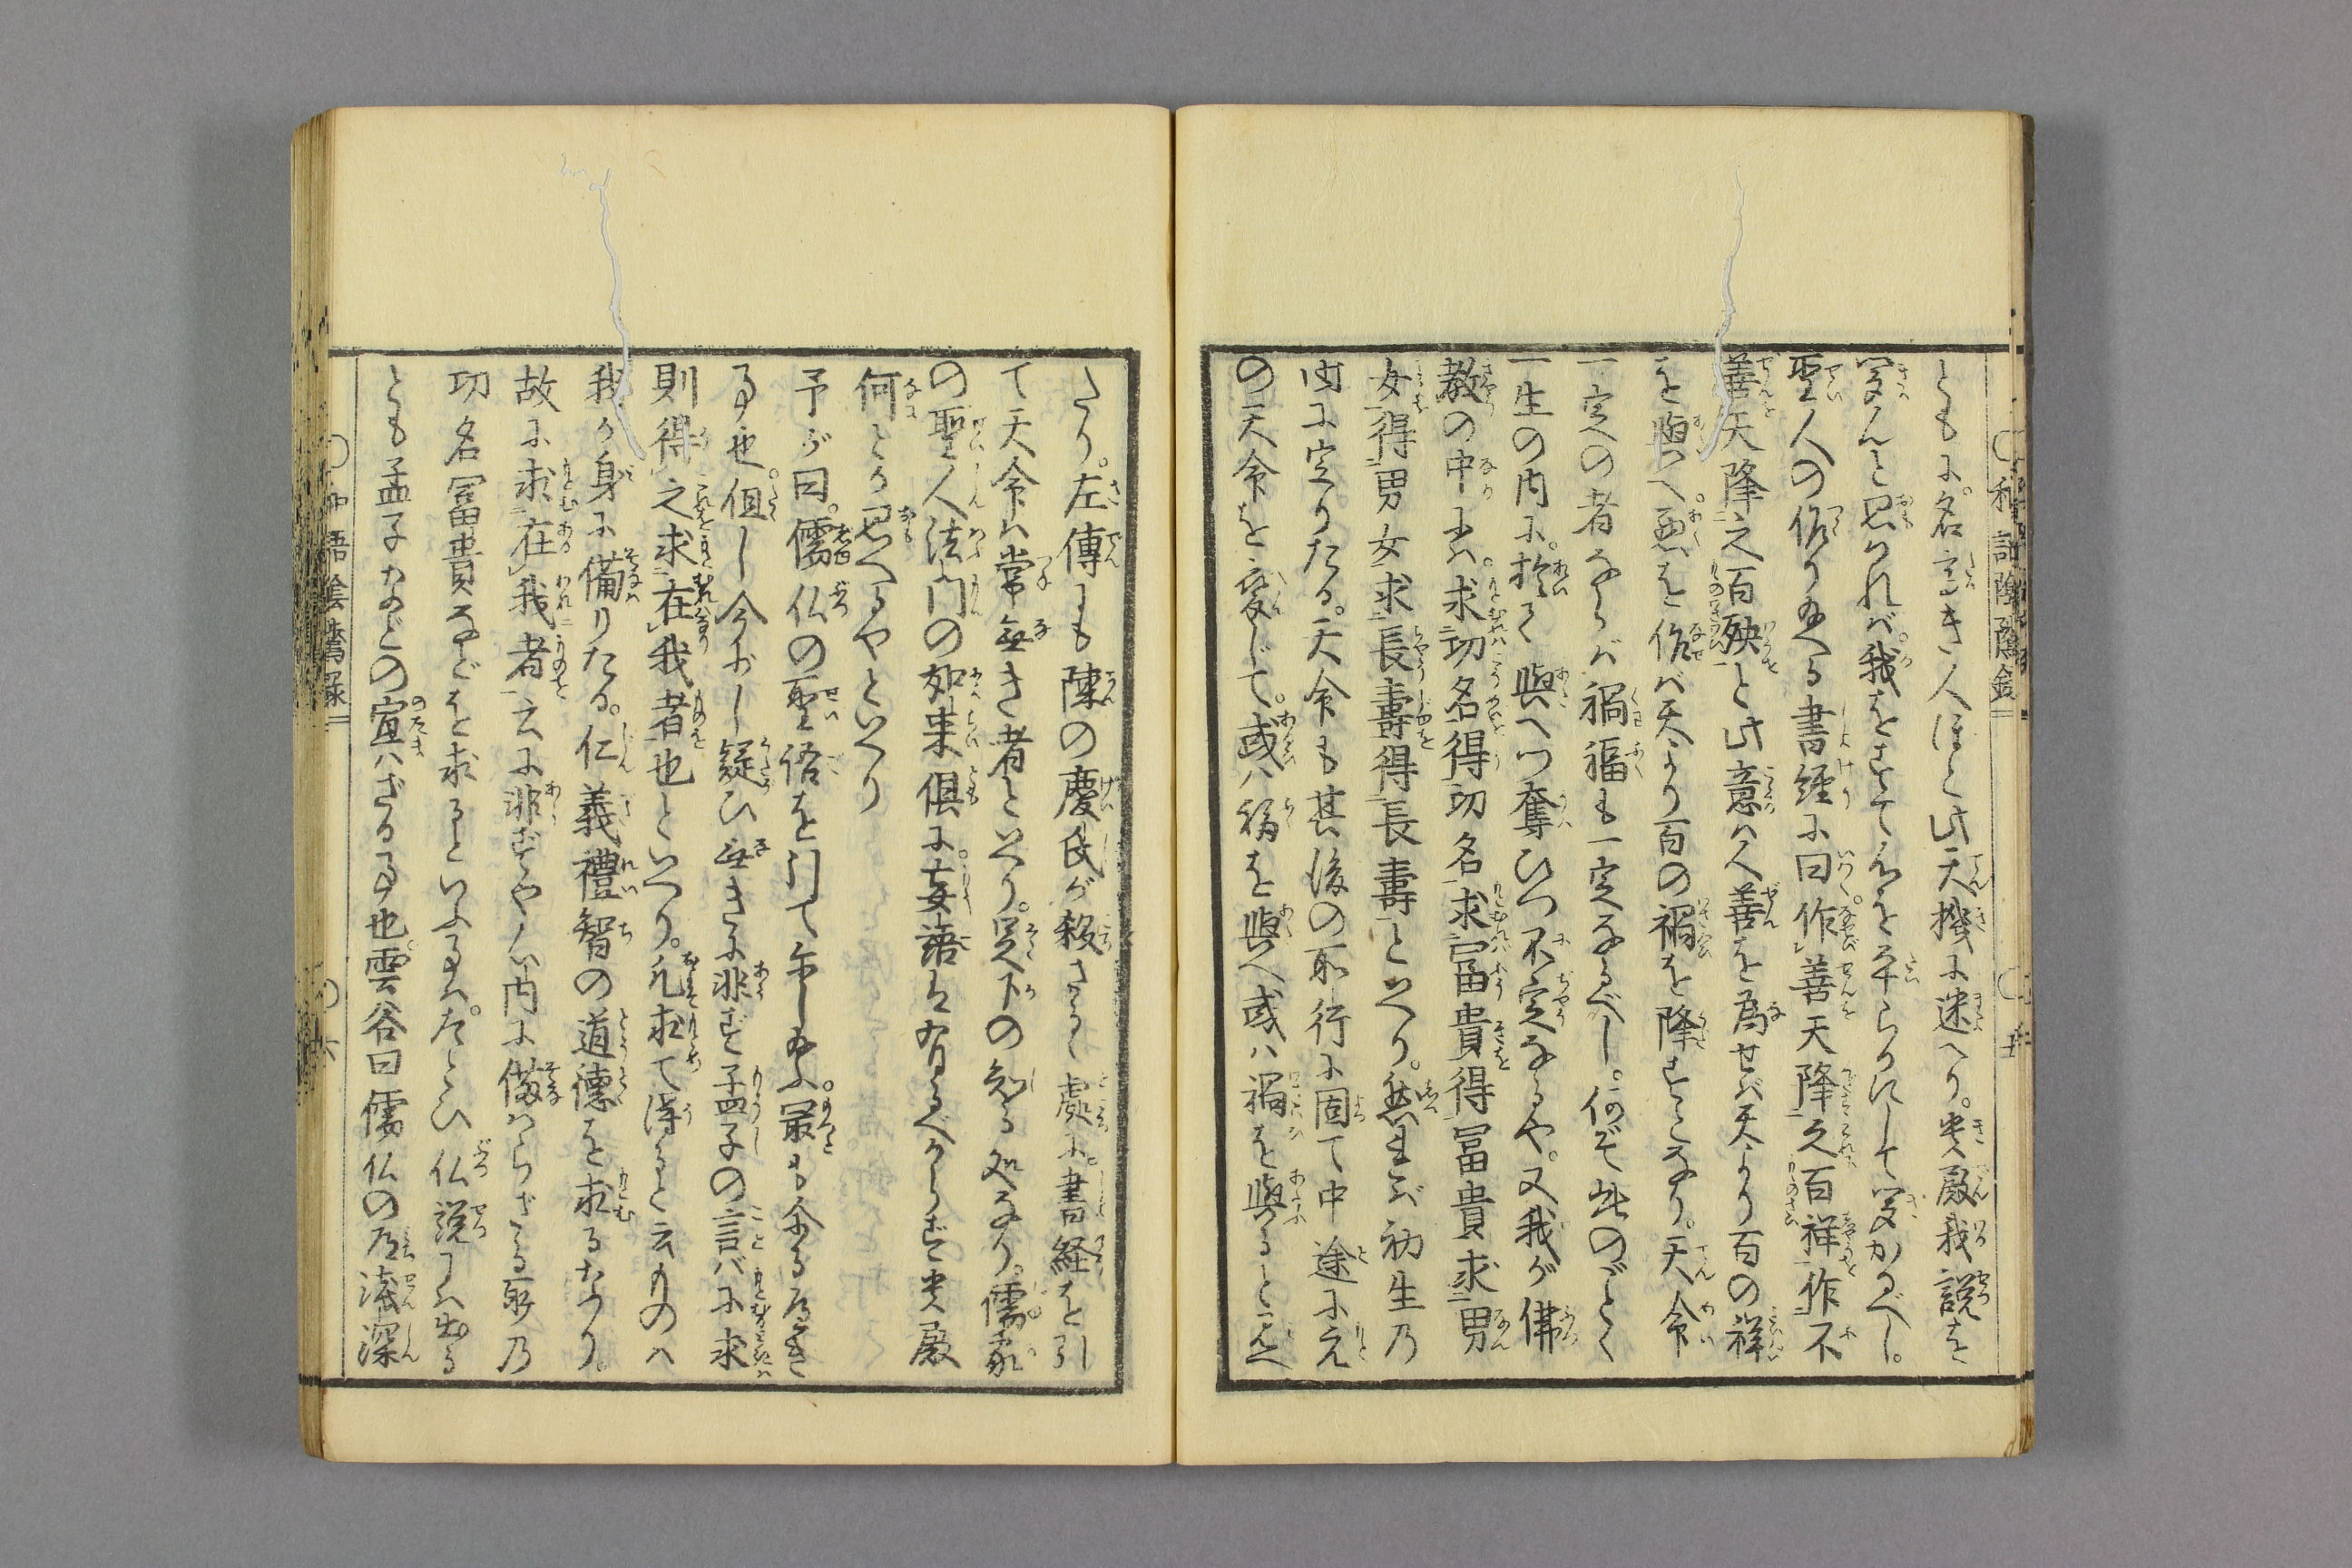 ともに名高き人ほど此天機に迷へり。貴殿我説を
聞んと思ハれバ。我をすてゝ心を平らかにして聞かるべし。
聖人の作り玉へる書経に曰。作善天降之百祥作不
善天降之百殃と此意ハ人善を為せバ天より百の祥
を與へ。悪を作バ天より百の禍を降すとなり。天命
一定の者ならバ禍福も一定なるべし。何ぞ此のごとく
一生の内に。於て與へつ奪ひつ不定なるや。又我が佛
教の中にハ。求功名得功名求富貴得冨貴求男
女得男女求長壽得長壽といへり。然れバ初生乃
時に定りたる。天命も其後の所行に因て中途に元
の天命を変じて。或ハ福を與へ或ハ禍を與ると見へ
たり。左傳にも陳の慶氏が殺さるゝ處に。書経を引
て天命ハ常無き者といへり。足下の知る処なり。儒家
の聖人法門の如来倶に。妄語は有るべからず貴殿
何とか思へるやといへり
予が曰。儒仏の聖語を引て命し玉ふ。最も余る尊き
事也。但し今少し疑ひ無きに非ず孟子の言バに求
則得之求在我者也といへり。凡求て得ると云ものハ
我が身に備りたる。仁義禮智の道徳を求るなり。
故に求在我者云に非ずや人内に備ハらざる所乃
功名冨貴などを求るといふ事ハ。たとひ仏説にハ出る
とも孟子などの宣ハざる事也。雲谷曰儒仏の道浅深